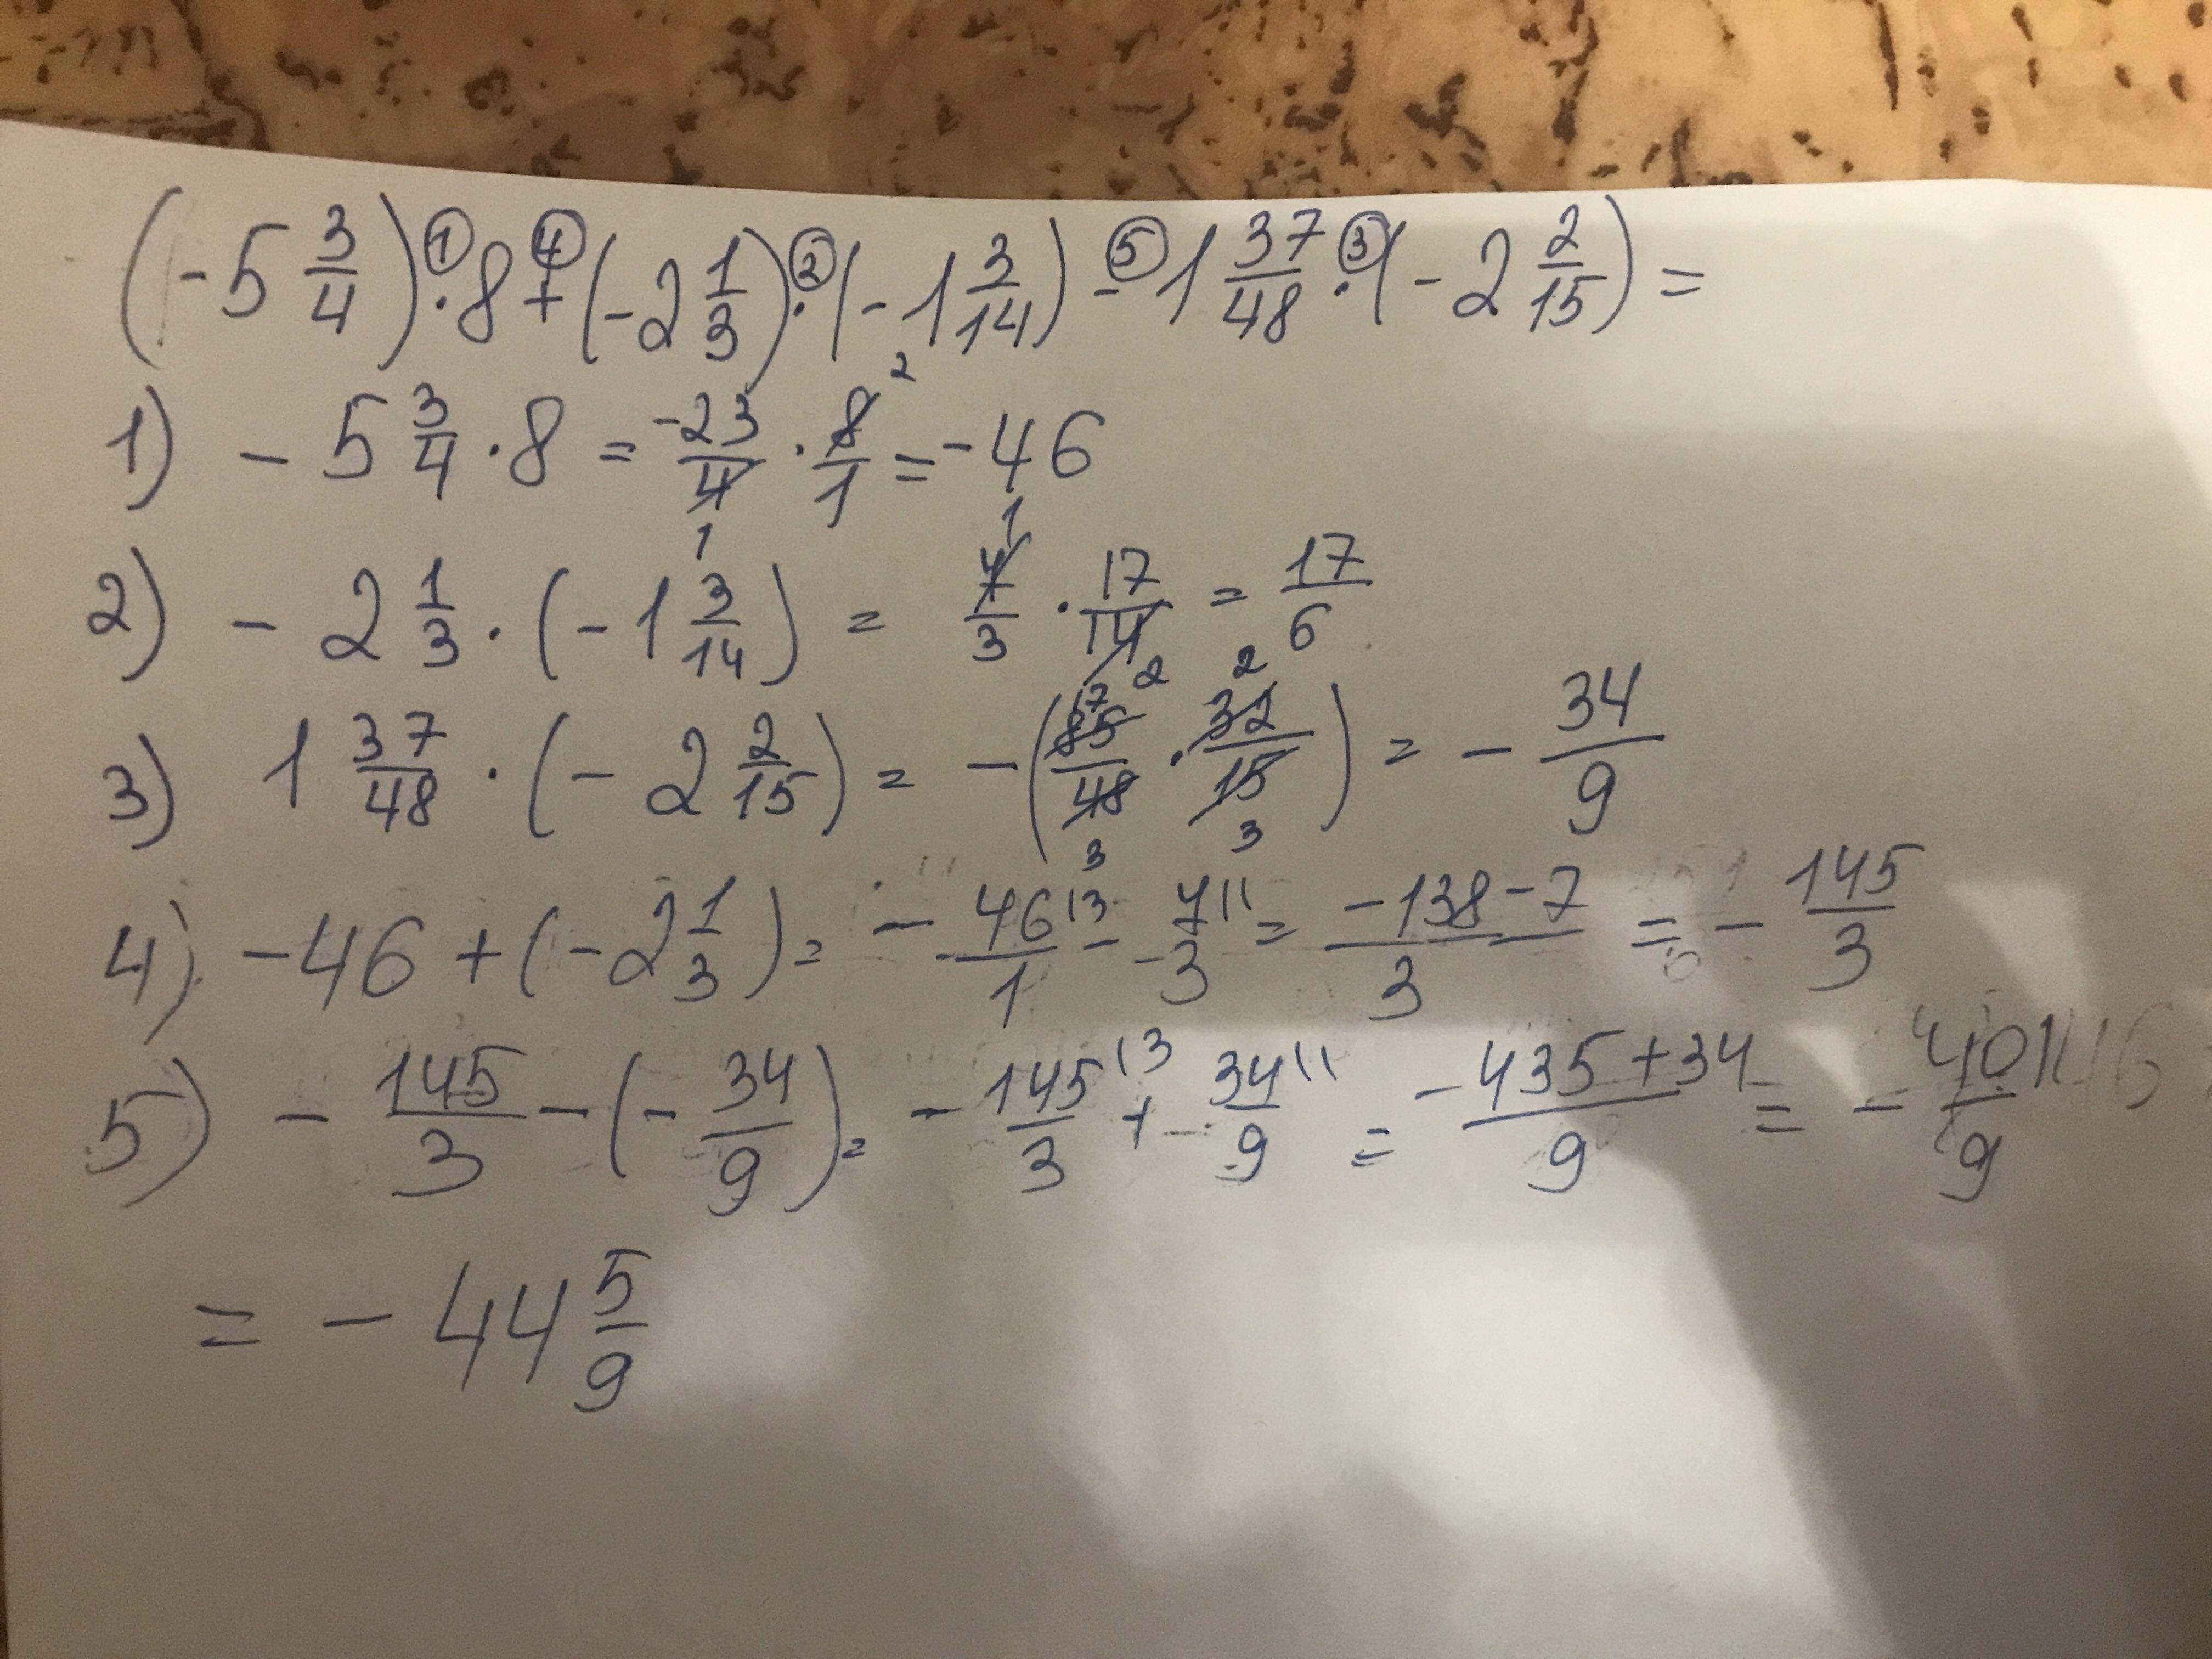 (-5 3/4) ① · 8 ④ + (-2 1/3) ② · (-1 3/14) ⑤ - 1 37/48 ③ · (-2 2/15) =
1) - 5 3/4 · 8 = -23/4 1 · 8/1 2 = -46
2) - 2 1/3 · (-1 3/14) = 7/3 1 · 17/14 2 = 17/6
3) 1 37/48 · (-2 2/15) = -(85/48 17 3 · 32/15 2 3) = - 34/9
4) -46 + (-2 1/3) = - 46/1 \3 - 7/3 \1 = -138-7/3 = - 145/3
5) - 145/3 - (- 34/9) = - 145/3 \3 + 34/9 \1 = -435+34/9 = - 401/9
= - 44 5/9